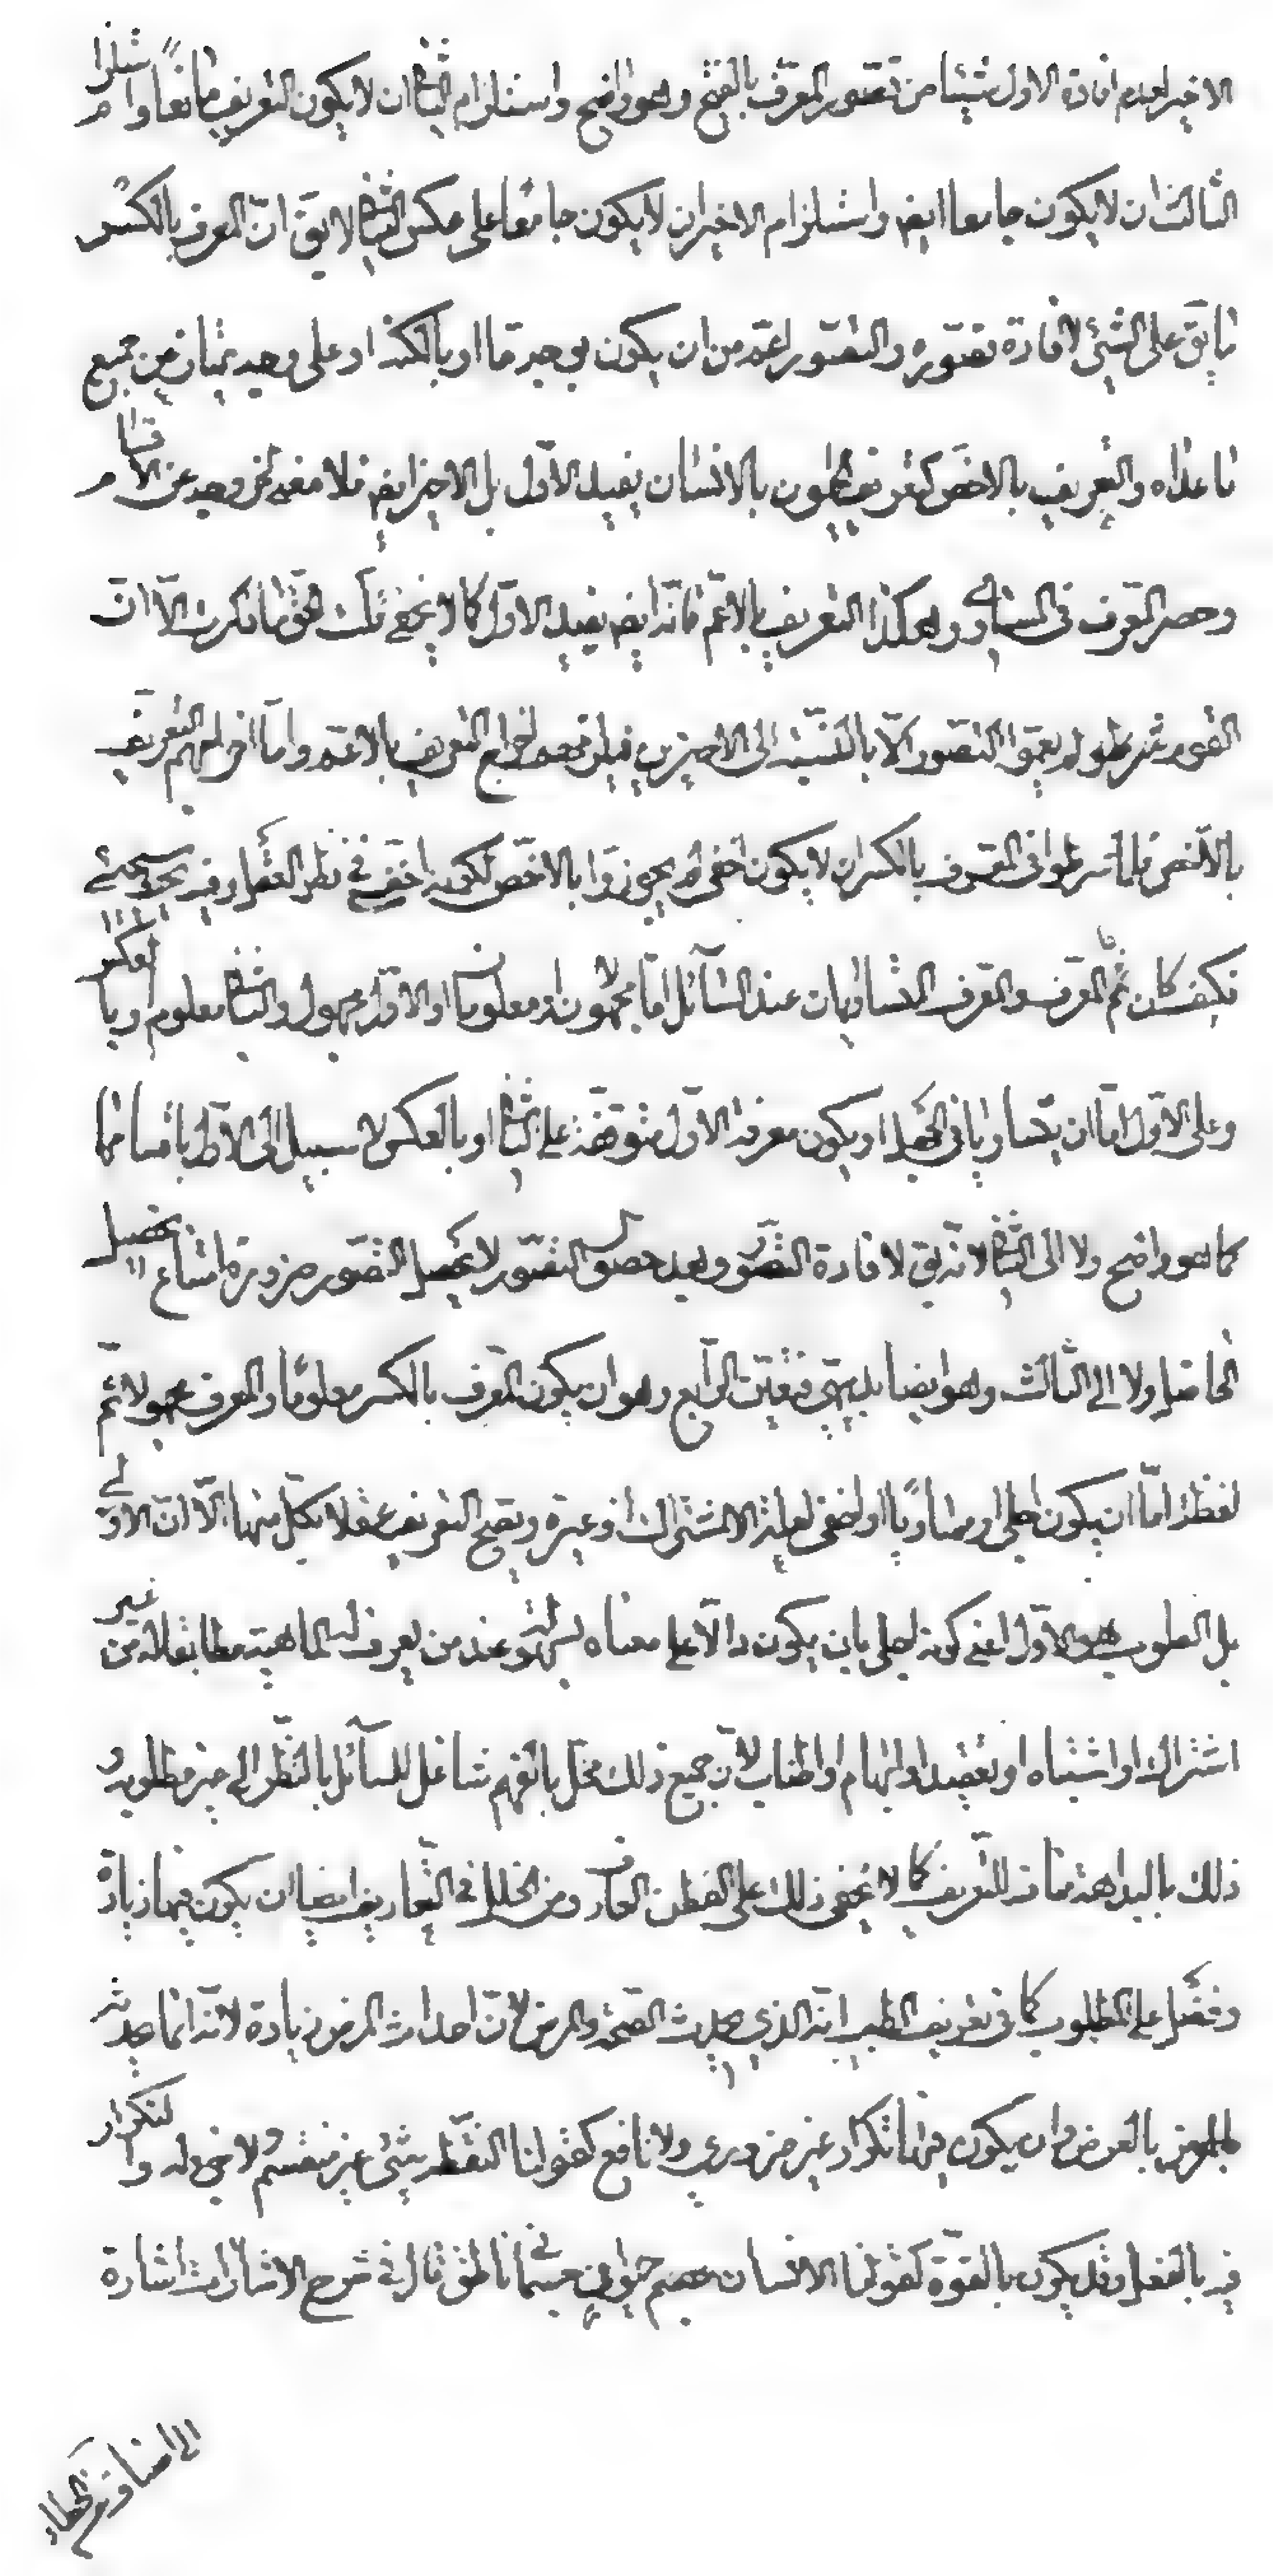 الاخير لعدم افادة الاول شيئا من تصور المعرف بالفتح وهو واضح واستلزام الثانى ان لا يكون التعريف مانعا واستلزام
الثالث ان لا يكون جامعا ايضا واستلزام الاخير ان لا يكون جامعا على عكس الثانى لا يق ان المعرف بالكسر
ما يق على الشئ لافادة تصوره والتصور اعم من ان يكون بوجه ما او بالكنه او على وجه يمتاز عن جميع
ما عداه والتعريف بالاخص كتعريف الحيوان بالانسان يفيد الاول بل الاخير ايض فلا معنى لخروجه عن الاقسام
وحصر المعرف فى المساوى وهكذا التعريف بالاعم فانه ايض يفيد الاول كما لا يخفى لانك الحق ما ذكرت الا ان
القوم لم يعتبروا التصور الا بالنسبة الى الاخيرين فيلزمهم اخراج التعريف بالاعم واما اخراجهم التعريف
بالاخص فلما شرطوا فى المعرف بالكسر ان لا يكون اخفى لم يجوزوا بالاخص لكونه اخفى فى نظر العقل وفيه بحث سيجئ
فكيف كان ثم المعرف والمعرف المتساويان عند السائل اما مجهولان او معلومان او الاول مجهول والثانى معلوم او بالعكس
وعلى الاول اما ان يتساويا فى الجهل او يكون معرفة الاول متوقفة على الثانى او بالعكس لا سبيل الى الاول باقسامها
كما هو واضح ولا الى الثانى لانه يق لافادة التصور وبعد حصول التصور لا يحصل التصور ضرورة امتناع تحصيل
الحاصل ولا الى الثالث وهو ايضا بديهى فتعين الرابع وهو ان يكون المعرف بالكسر معلوما والمعرف مجهولا ثم
لفظه اما ان يكون اجلى او مساويا او اخفى لعلة الاشتراك او غيره ويصح التعريف عقلا بكل منها الا ان الاولى
بل المطلوب هو الاول اعنى كونه اجلى بان يكون دالا على معناه بسهولة عند من يعرف الماهية مطابقا له من غير
اشتراك او اشتباه او تعقيد او ابهام او اطناب لان جميع ذلك مخل بالفهم شاغل للسائل بالنظر الى غير مطلوبه و
ذلك بالبداهة مناف للتعريف كما لا يخفى ذلك على الفطن العارف ومن الخلل فى التعاريف ايضا ان يكون فيها زيادة
وفضل على المطلوب كما فى تعريف الطب انه الذى يحدث الصحة والمرض لان احداث المرض زيادة لانه انما يحدث
المرض بالعرض وان يكون فيها تكرار غير ضرورى ولا نافع كقولنا النقطة شئ غير منقسم لا جزء له والتكرار
فيه بالفعل وقد يكون بالقوة كقولنا الانسان جسم حيوانى جسمانى ناطق قال فى شرح الاشارات اشارة
الى اصناف من الخطاء